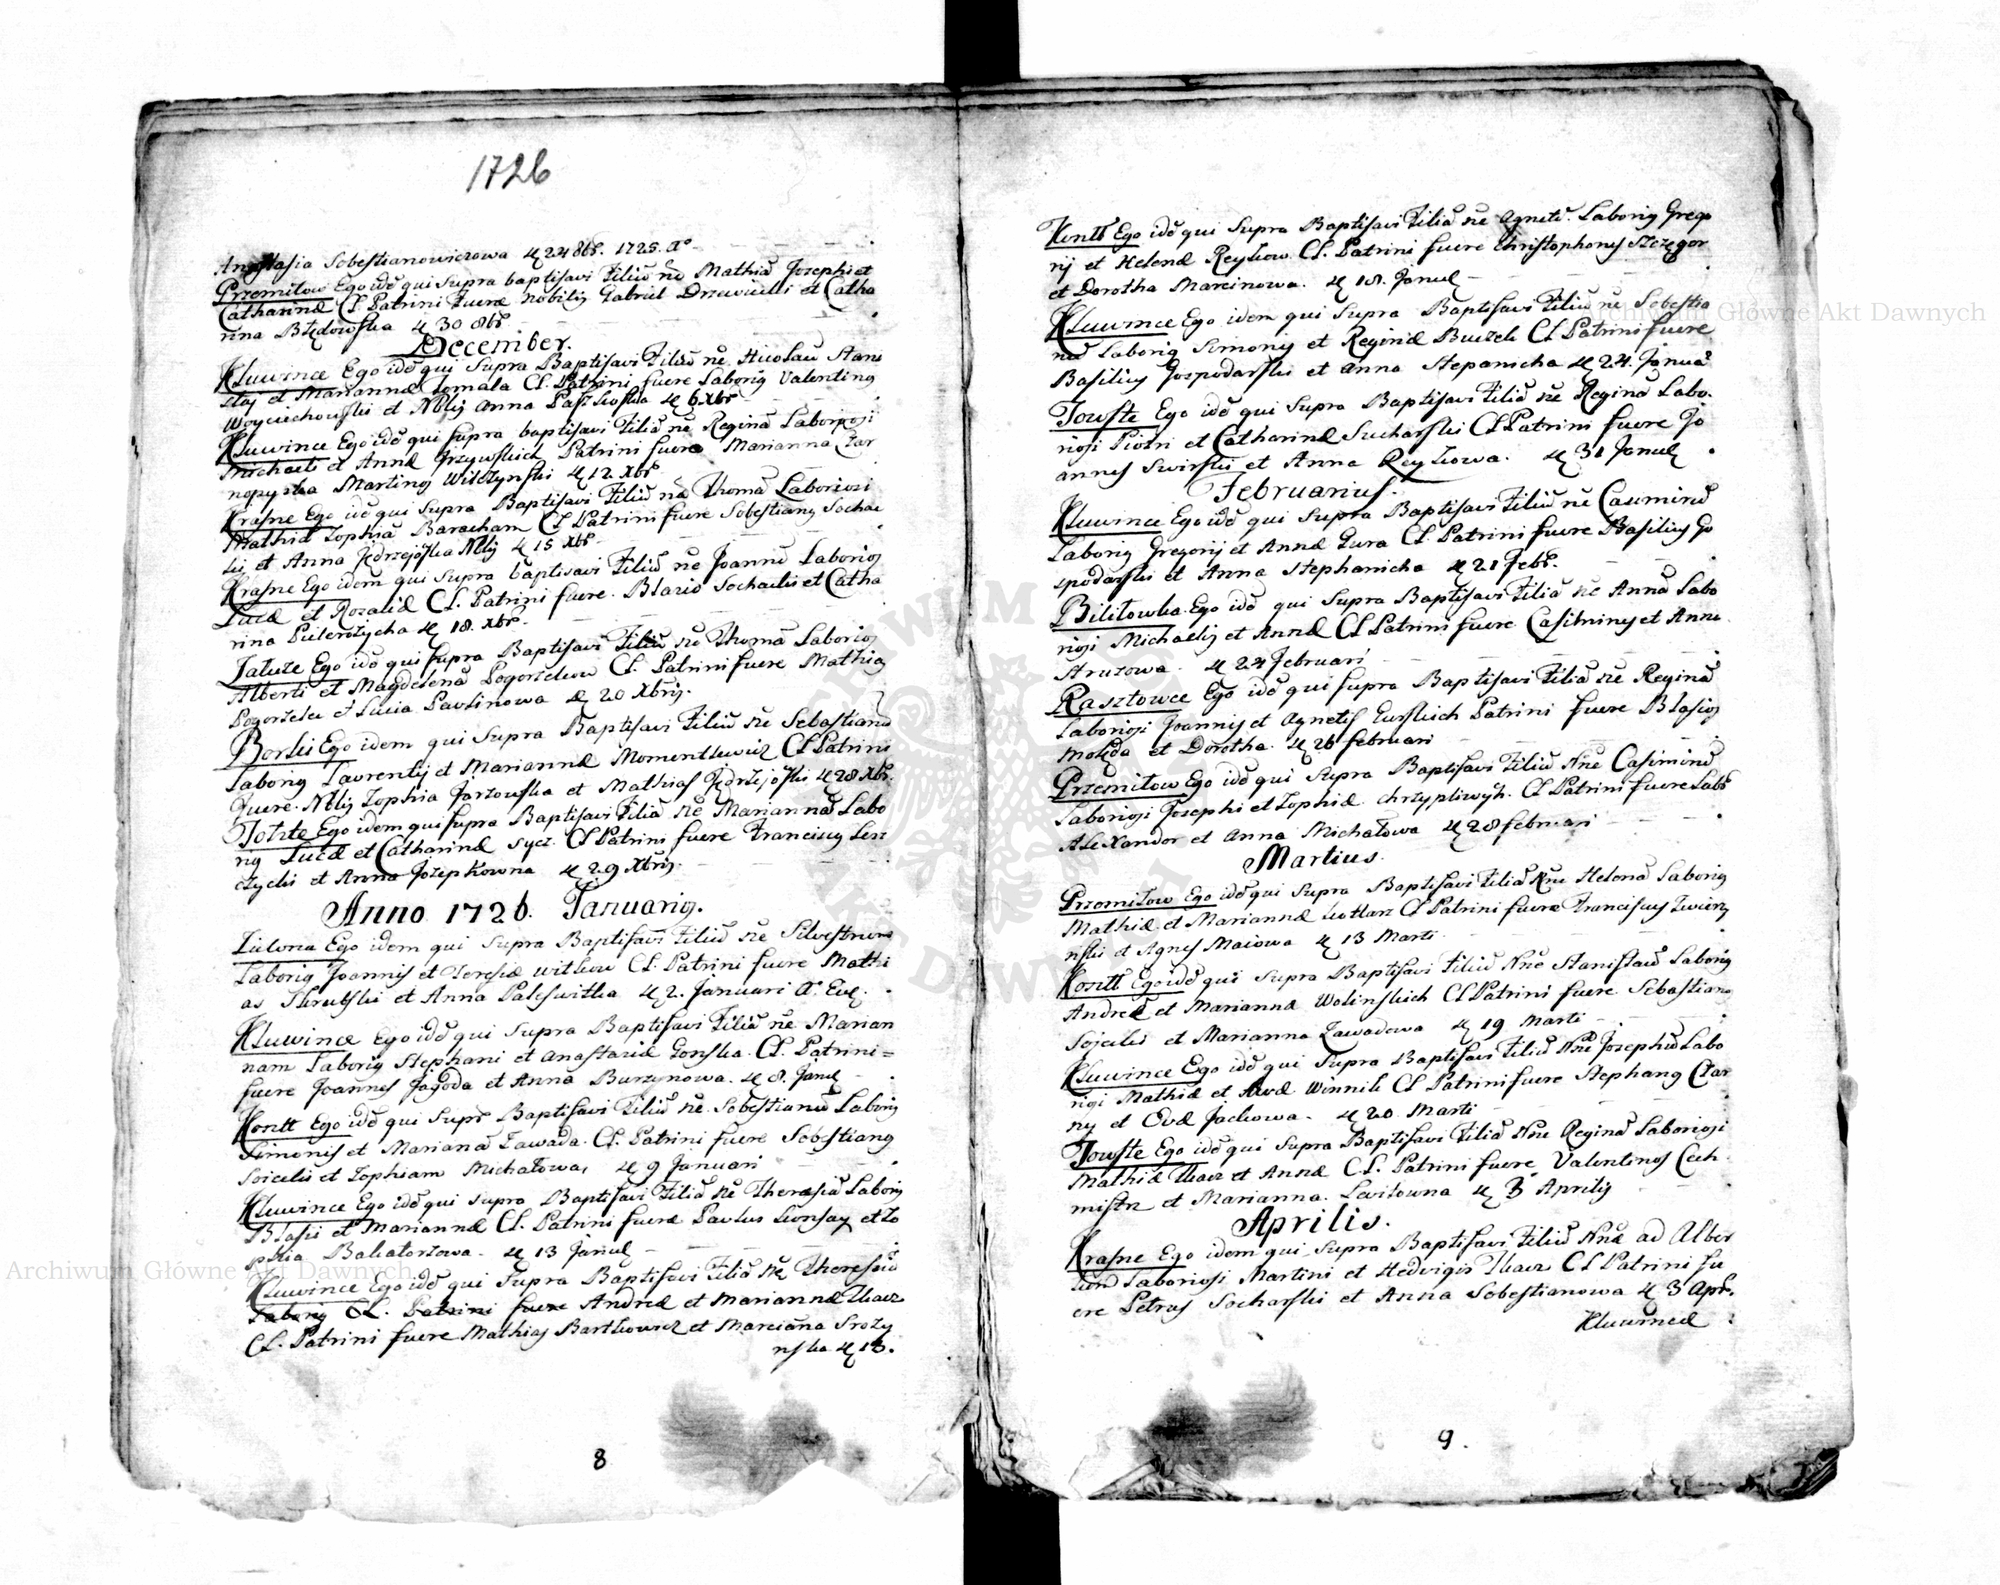 1726
Anastasia Sobestianowiczowa 24 8br. 1725. A°
Przemiłow Ego idē qui supra baptisavi Filiū ne Mathiā Josephi et
Catharinæ CL Patrini fuere Nobilis Gabriel Drzewiecki et Catha
rina Błędowska 30 8br
December.
Kluwince Ego idē qui Supra Baptisavi Filiū ne Nicolaū Stani
slai et Mariannæ Jomala CL. Patrini fuere Laboris Valentins
Woyciechowski et Nblis Anna Paszkoska 6 Xbr
Kluwince Ego idē qui supra baptisavi Filiā ne Reginā Laboriosi
Michaeli et Annæ Grzywskich Patrini fuere Marianna Czar
nopyska Martinus Wilczynski 12 Xbr
Krasne Ego idē qui Supra Baptisavi Filiū ne Thomā Laboriosi
Mathiæ Zophiæ Baracham CL Patrini fuere Sobestians Sochac
ki et Anna Jędrzejoska Nblis 15 Xbr
Krasne Ego idem qui Supra baptisavi Filiū ne Joannē Laborios
Lucæ et Rozaliæ CL. Patrini fuere. Blazio Sochacki et Catha
rina 18. Xbr
Ego idē qui supra Baptisavi Filiū ne Thomā Laborios
Alberti et Magdelenæ CL. Patrini fuere Mathias
et Lucia Pavlinowa 20 Xbris.
Borki Ego idem qui Supra Baptisavi Filiū ne Sebastianū
Laboris Laurentij et Mariannæ Momentkewicz CL Patrini
fuere. Nblis Zophia Jarzowska et Mathias Jędrzejoski 28 Xbr.
Totste Ego idem qui supra Baptisavi Filiā ne Mariannā Labo
ris Lucæ et Catharinæ Sycz CL Patrini fuere Franciscus Lesz
czycki et Anna Jozepkowna 29 Xbris.
Anno 1726. Januaris.
Ego idem qui Supra Baptisavi Filiū ne Silvestrum
Laboris Joannis et Teresiæ Witkow CL. Patrini fuere Mathi
as Skrutski et Anna 2. Januari
Kluwince Ego idē qui Supra Baptisavi Filiā ne Marian
nam Laboris Stephani et Anastaziæ Gonska. CL. Patrini=
fuere Joannes Jagoda et Anna Burzynowa. 8. Januar
Kontt Ego idē qui Supr Baptisavi Filiū ne Sobestianū Laboris
Simonis et Marianæ Zawada. CL. Patrini fuere Sobestians
Soiecki et Zophiam Michałowa, 9 Januari
Kluwince Ego idē qui supra Baptisavi Filiā ne Theresiā Laboris
Blasii et Mariannæ CL. Patrini fuere Pavlus et Zo
phia 13 Januar
Kluwince Ego idē qui Supra Baptisavi Filiā ne Theresiā
Laboris CL. Patrini fuere Andreæ et Mariannæ Tkacz
CL. Patrini fuere Mathias Bartkowicz et Marciana Srozy
nska 18.
8
Kontt Ego idē qui Supra Baptisavi Filiā ne Agnetē. Laboris Grego
rij et Helenæ Reykow. CL. Patrini fuere Christophorus Szczęgor
et Dorotha Marcinowa. 18. Januar
Kluwince Ego idem qui Supra Baptisavi Filiū ne Sebestia
nū Laboris Simonis et Reginæ CL Patrini fuere
Basilius Gospodarski et Anna Stepanicha 24. Janua
Towste Ego idē qui Supra Baptisavi Filiā ne Reginā Labo.
riosi Piotri et Catharinæ Sucharski CL Patrini fuere Jo
annes Swirski et Anna Reykowa. 31 Januar
Februarius.
Kluwince Ego idē qui supra Baptisavi Filiū ne Casimirū
Laboris Gregorij et Annæ Gura CL. Patrini fuere Basilius Go
spodarski et Anna Stephanicha 21 Febr.
Bilitowka. Ego idē qui Supra Baptisavi Filiā ne Annā Labo
riosi Michaelis et Annæ CL Patrini fuere Casimirus et Anna
Struzowa. 24 Februari
Rasztowce Ego idē qui supra Baptisavi Filiā ne Reginā
Laboriosi Joannis et Agnetis Gurskich Patrini fuere Blasios
et Dorotha. 26 februari
Przemiłow Ego idē qui Supra Baptisavi Filiū Nne Casimirū
Laboriosi Josephi et Zophiæ. Chrzypliwych. CL Patrini fuere Labr
Alexander et Anna Michałowa 28 februari
Martius.
Przemiłow Ego idē qui supra Baptisavi Filiā Nne Helenā Laboris
Mathiæ et Mariannæ CL Patrini fuere Franciscus Zwierz
nski et Agnes Maiowa 13 Marti
Kontt Ego idē qui Supra Baptisavi Filiū Nne Stanislaū Laboris
Andreæ et Mariannæ Wolinskich CL Patrini fuere Sebastians
Sojecki et Marianna Zawadowa 19 Marti
Kluwince Ego idē qui Supra Baptisavi Filiū Nne Josephū Labo
riosi Mathiæ et Evæ Winnik CL Patrini fuere Stephans Czar
ny et Evæ Jackowa. 20. Marti
Towste Ego idē qui Supra Baptisavi Filiā Nne Reginā Laboriosi
Mathiæ Tkacz et Annæ C.L. Patrini fuere Valentinus Cech
mistrz et Marianna. Levitowna 3 Aprilis
Aprilis.
Krasne Ego idem qui Supra Baptisavi Filiū Nne ad Alber
tum Laboriosi Martini et Hedvigis Tkacz CL Patrini fu
ere Petrus Socharski et Anna Sobestianowa 3 Apr.
Kluwincæ
9.
Archiwum Główne Akt Dawnych
Archiwum Główne Akt Dawnych